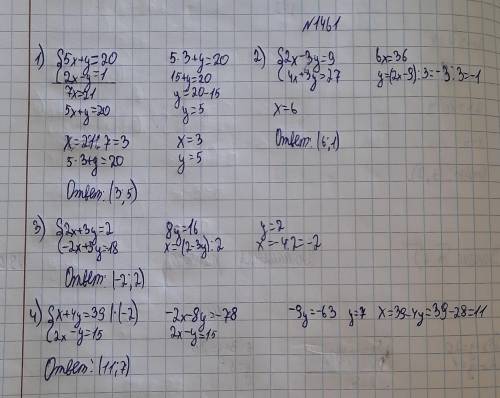 №1461
1) {5x+y=20 5·3+y=20 2) {2x-3y=9 6x=36
{2x-y=1 15+y=20 {4x+3y=27 y=(2x-9):3=-3:3=-1
7x=21 y=20-15
5x+y=20 y=5 x=6
x=21:7=3 x=3 Ответ: (6;1)
5·3+y=20 y=5
Ответ: (3;5)
3) {2x+3y=2 8y=16 y=2
{-2x+5y=18 x=(2-3y):2 x=-4:2=-2
Ответ: (-2;2)
4) {x+4y=39 |·(-2) -2x-8y=-78 -9y=-63 y=7 x=39-4y=39-28=11
{2x-y=15 2x-y=15
Ответ: (11;7)